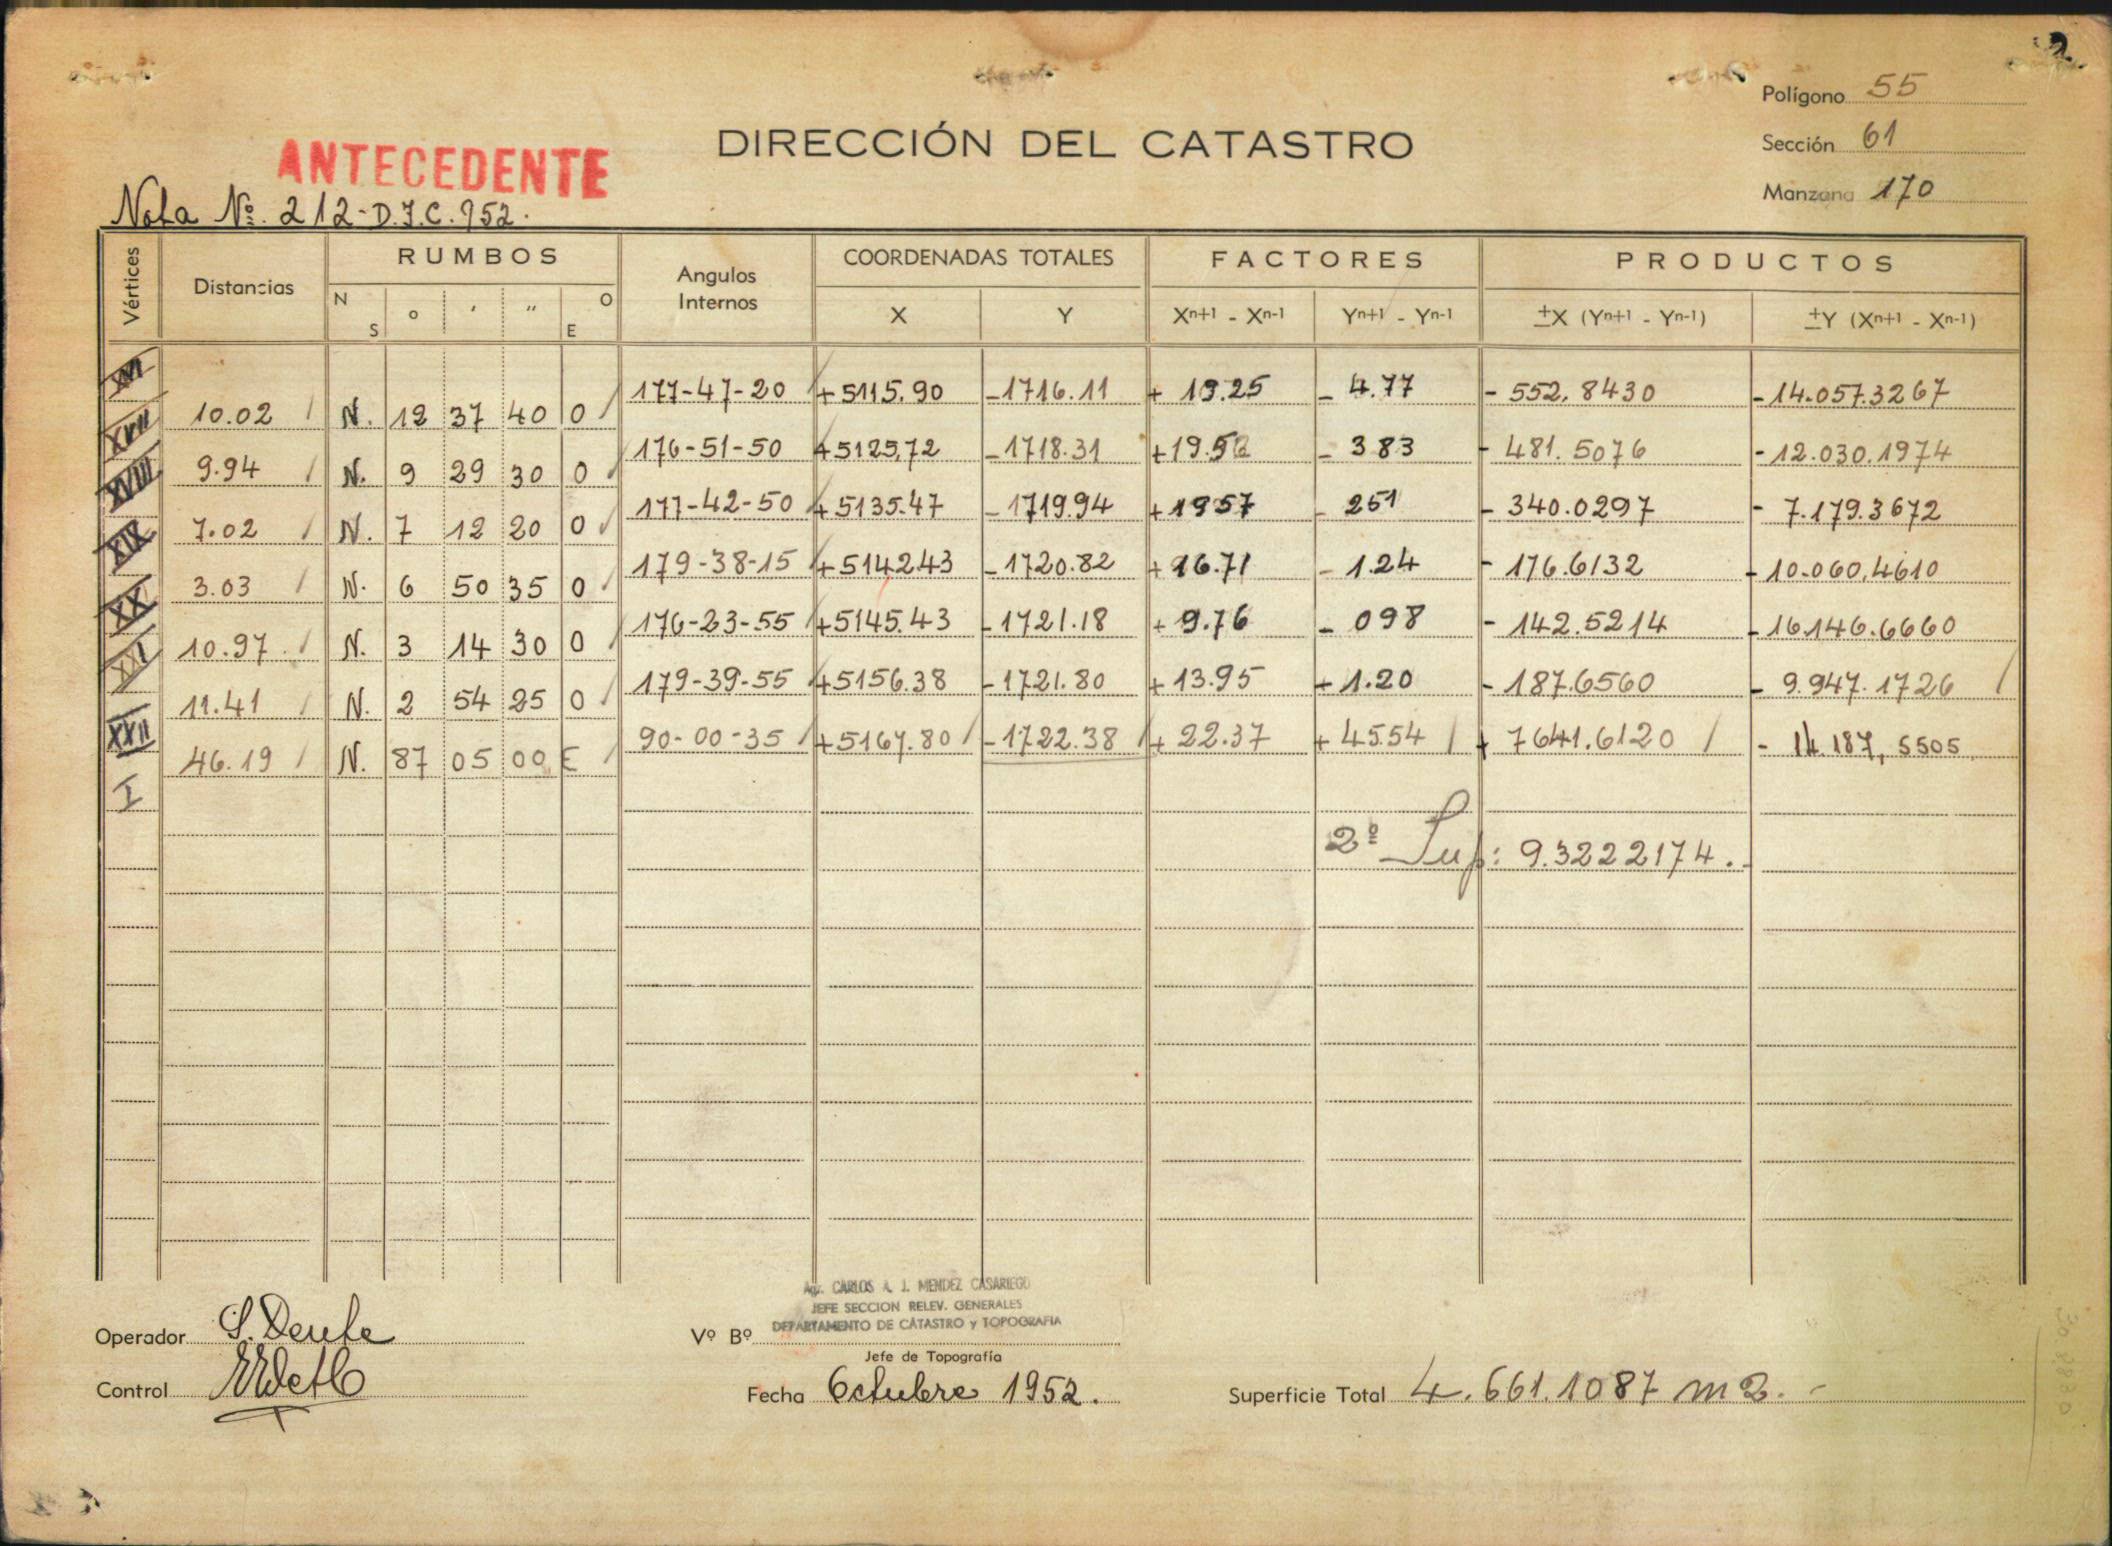 2
Polígono 55
DIRECCIÓN DEL CATASTRO
Sección 61
ANTECEDENTE
Manzana 170
Nota Nº. 212-D.J.C.952.
Vértices Distancias RUMBOS Angulos Internos COORDENADAS TOTALES FACTORES PRODUCTOS
N S º ' " O E X Y Xn+1 - Xn-1 Yn+1 - Yn-1 ±X (Yn+1 - Yn-1) ±Y (Xn+1 - Xn-1)
XVI 177-47-20 +5115.90 -1716.11 + 19.25 - 4.77 - 552.8430 -14.057.3267
10.02 N. 12 37 40 O
XVII 176-51-50 +5125,72 -1718.31 +19.58 - 3 83 - 481.5076 -12.030.1974
9.94 N. 9 29 30 O
XVIII 177-42-50 +5135.47 -1719.94 +1957 - 251 - 340.0297 - 7.179.3672
7.02 N. 7 12 20 O
XIX 179-38-15 +514243 -1720.82 +16.71 - 1.24 - 176.6132 -10.060,4610
3.03 N. 6 50 35 O
XX 176-23-55 +5145.43 -1721.18 + 9.76 - 098 - 142.5214 -16146.6660
10.97 N. 3 14 30 O
XXI 179-39-55 +5156.38 -1721.80 + 13.95 + 1.20 - 187.6560 - 9.947.1726
11.41 N. 2 54 25 O
XXII 90-00-35 +5167.80 -1722.38 + 22.37 + 45.54 + 7641.6120 - 14.187,5505
46.19 N. 87 05 00 E
I
2º Sup: 9.3222174.-
Agr. CARLOS A. J. MENDEZ CASARIEGO
JEFE SECCION RELEV. GENERALES
DEPARTAMENTO DE CATASTRO y TOPOGRAFIA
Operador S. Deule Vº Bº
Jefe de Topografía
Control Fecha Octubre 1952. Superficie Total 4.661.1087 m2.-